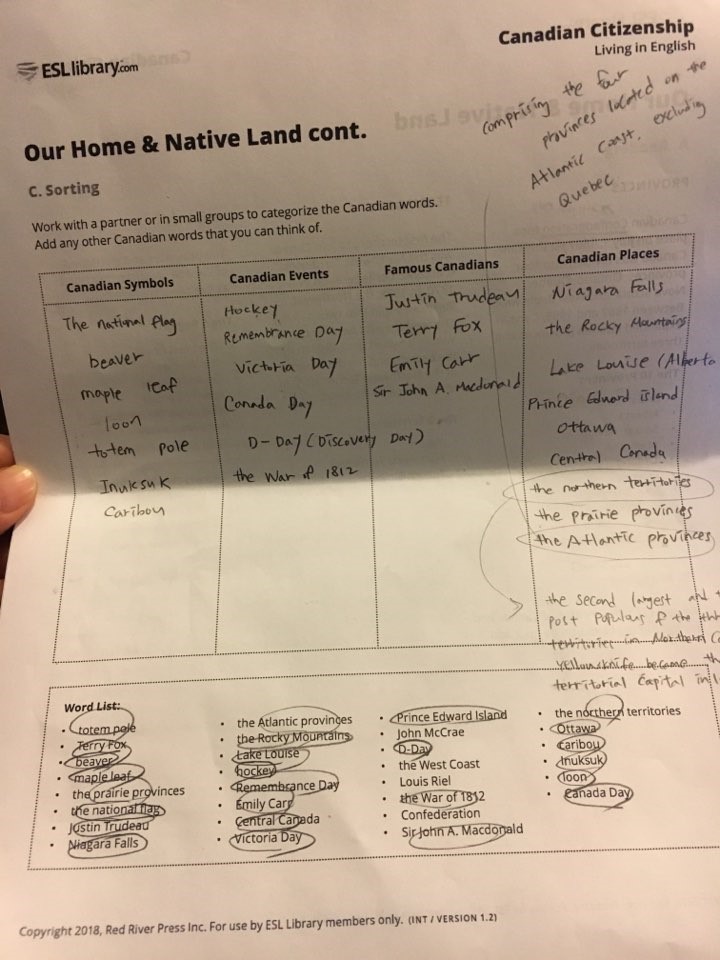 Canadian Citizenship
Living in English
ESLlibrary.com
comprising the four
provinces located on the
Atlantic Coast, excluding
Quebec
Our Home & Native Land cont.
C. Sorting
Work with a partner or in small groups to categorize the Canadian words.
Add any other Canadian words that you can think of.
Canadian Symbols
The national flag
beaver
maple leaf
loon
totem pole
Inuksuk
Caribou
Canadian Events
Hockey
Remembrance Day
Victoria Day
Canada Day
D-Day (Discovery Day)
the War of 1812
Famous Canadians
Justin Trudeau
Terry Fox
Emily Carr
Sir John A. Macdonald
Canadian Places
Niagara Falls
the Rocky Mountains
Lake Louise (Alberta
Prince Edward island
Ottawa
Central Canada
the northern territories
the prairie provinces
the Atlantic provinces
the second largest and
post populous of the
territories in Northern
Yellowknife became
territorial capital in
Word List:
• totem pole
• Terry Fox
• beaver
• maple leaf
• the prairie provinces
• the national flag
• Justin Trudeau
• Niagara Falls
• the Atlantic provinces
• the Rocky Mountains
• Lake Louise
• hockey
• Remembrance Day
• Emily Carr
• Central Canada
• Victoria Day
• Prince Edward Island
• John McCrae
• D-Day
• the West Coast
• Louis Riel
• the War of 1812
• Confederation
• Sir John A. Macdonald
• the northern territories
• Ottawa
• caribou
• Inuksuk
• loon
• Canada Day
Copyright 2018, Red River Press Inc. For use by ESL Library members only. (INT / VERSION 1.2)